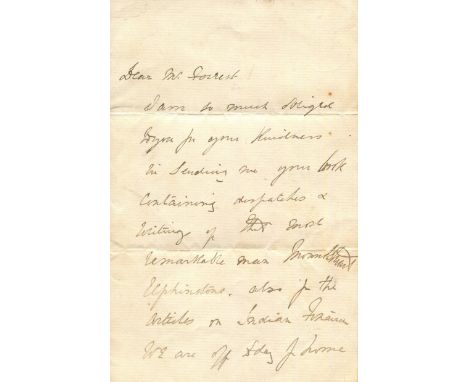 Dear Mr Forrest
I am so much obliged
to you for your kindness
in sending me your book
containing despatches &
writing of that most
remarkable man Mountstuart
Elphinstone, also for the
articles on Indian Finance
We are off today for home